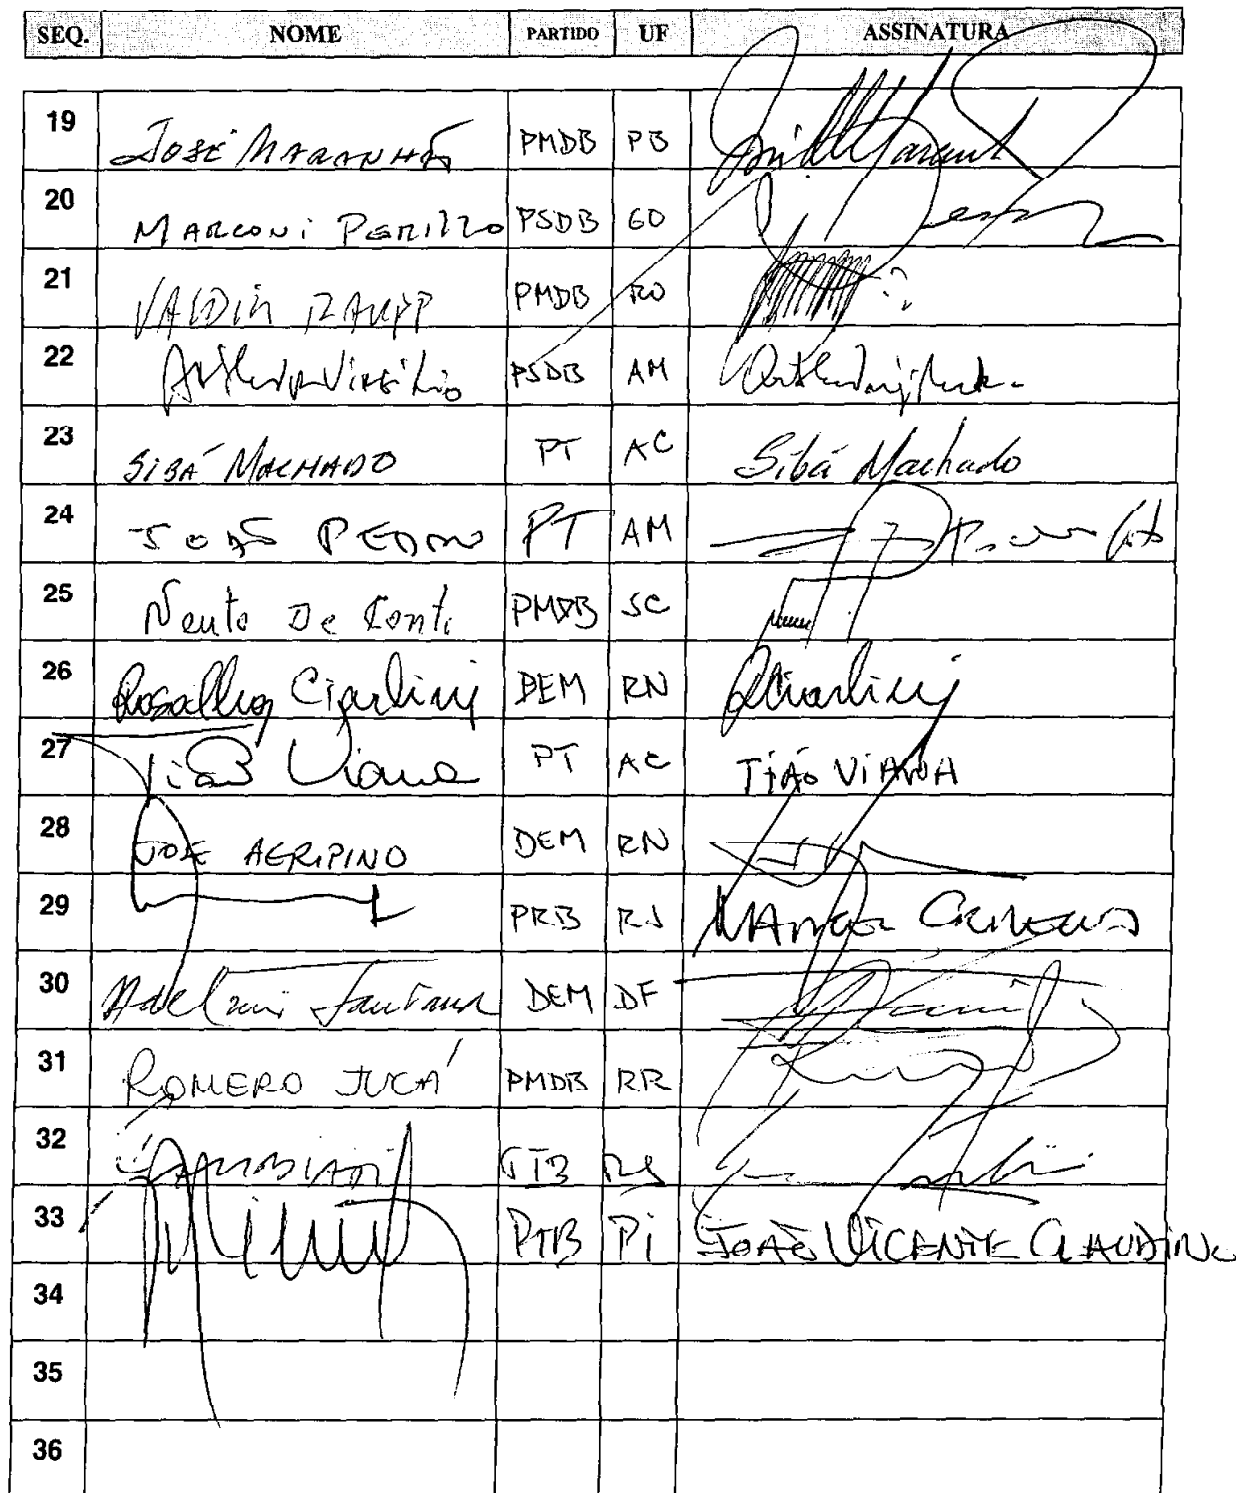 SEQ. NOME PARTIDO UF ASSINATURA
19 JOSÉ MARANHÃO PMDB PB
20 MARCONI PERILLO PSDB GO
21 VALDIR RAUPP PMDB RO
22 Arthur Virgílio PSDB AM
23 SIBÁ MACHADO PT AC Sibá Machado
24 JOÃO PEDRO PT AM
25 Neuto De Conto PMDB SC
26 Rosalba Ciarlini DEM RN RCiarlini
27 Tião Viana PT AC TIÃO VIANA
28 JOSE AGRIPINO DEM RN
29 PRB RJ MARCELO CRIVELLA
30 Adelmir Santana DEM DF
31 ROMERO JUCÁ PMDB RR
32 ZAMBIASI PTB RS
33 PTB PI JOÃO VICENTE CLAUDINO
34
35
36